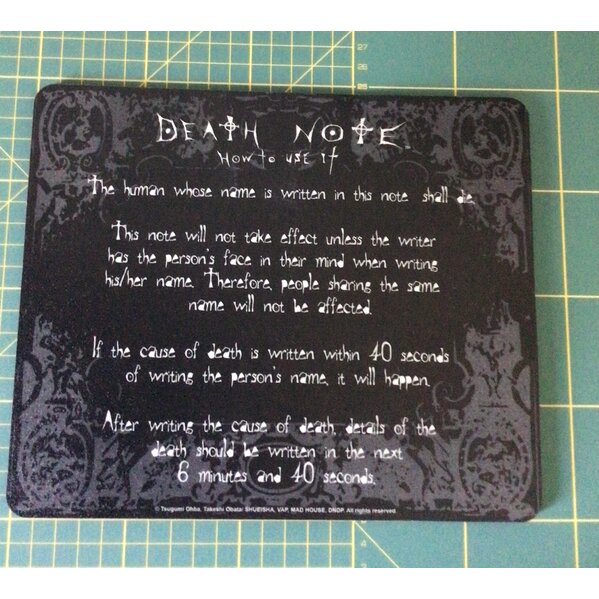 27
DEATH NOTE
HOW TO USE IT
The human whose name is written in this note shall die.
This note will not take effect unless the writer
has the person's face in their mind when writing
his/her name. Therefore, people sharing the same
name will not be affected.
If the cause of death is written within 40 seconds
of writing the person's name, it will happen.
After writing the cause of death, details of the
death should be written in the next
6 minutes and 40 seconds.
© Tsugumi Ohba, Takeshi Obata/ SHUEISHA, VAP, MAD HOUSE, DNDP. All rights reserved.